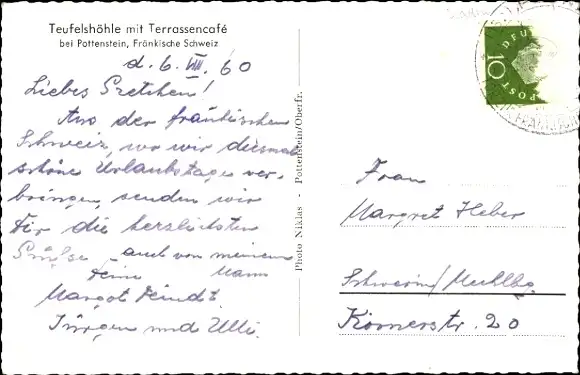 Teufelshöhle mit Terrassencafé
bei Pottenstein, Fränkische Schweiz
d. 6. VIII. 60
Liebes Gretchen!
Aus der fränkischen
Schweiz, wo wir diesmal
schöne Urlaubstage ver-
bringen, senden wir
Dir die herzlichsten
Grüße - auch von meinem
Deine Mann
Margot
Jürgen und Ulli.
Photo Niklas - Pottenstein/Oberfr.
DEU
POST
10
Frau
Margret Heber
Schwerin/Mecklbg.
Körnerstr. 20